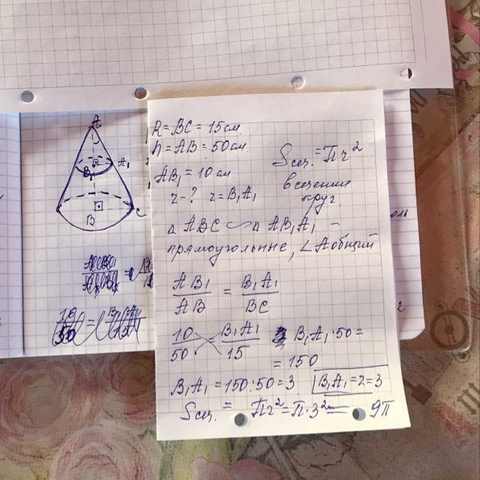 R = BC = 15см
h = AB = 50см
AB₁ = 10см
r - ? r = B₁A₁
Sсеч. = Пr²
в сечении
круг.
△ ABC ∽ △ AB₁A₁ -
прямоугольные, ∠A общий
AB₁/AB = B₁A₁/BC
10/50 = B₁A₁/15
B₁A₁·50 =
= 150
B₁A₁ = 150:50 = 3
B₁A₁ = r = 3
Sсеч. = Пr² = П·3² = 9П
A
B₁
A₁
B
C